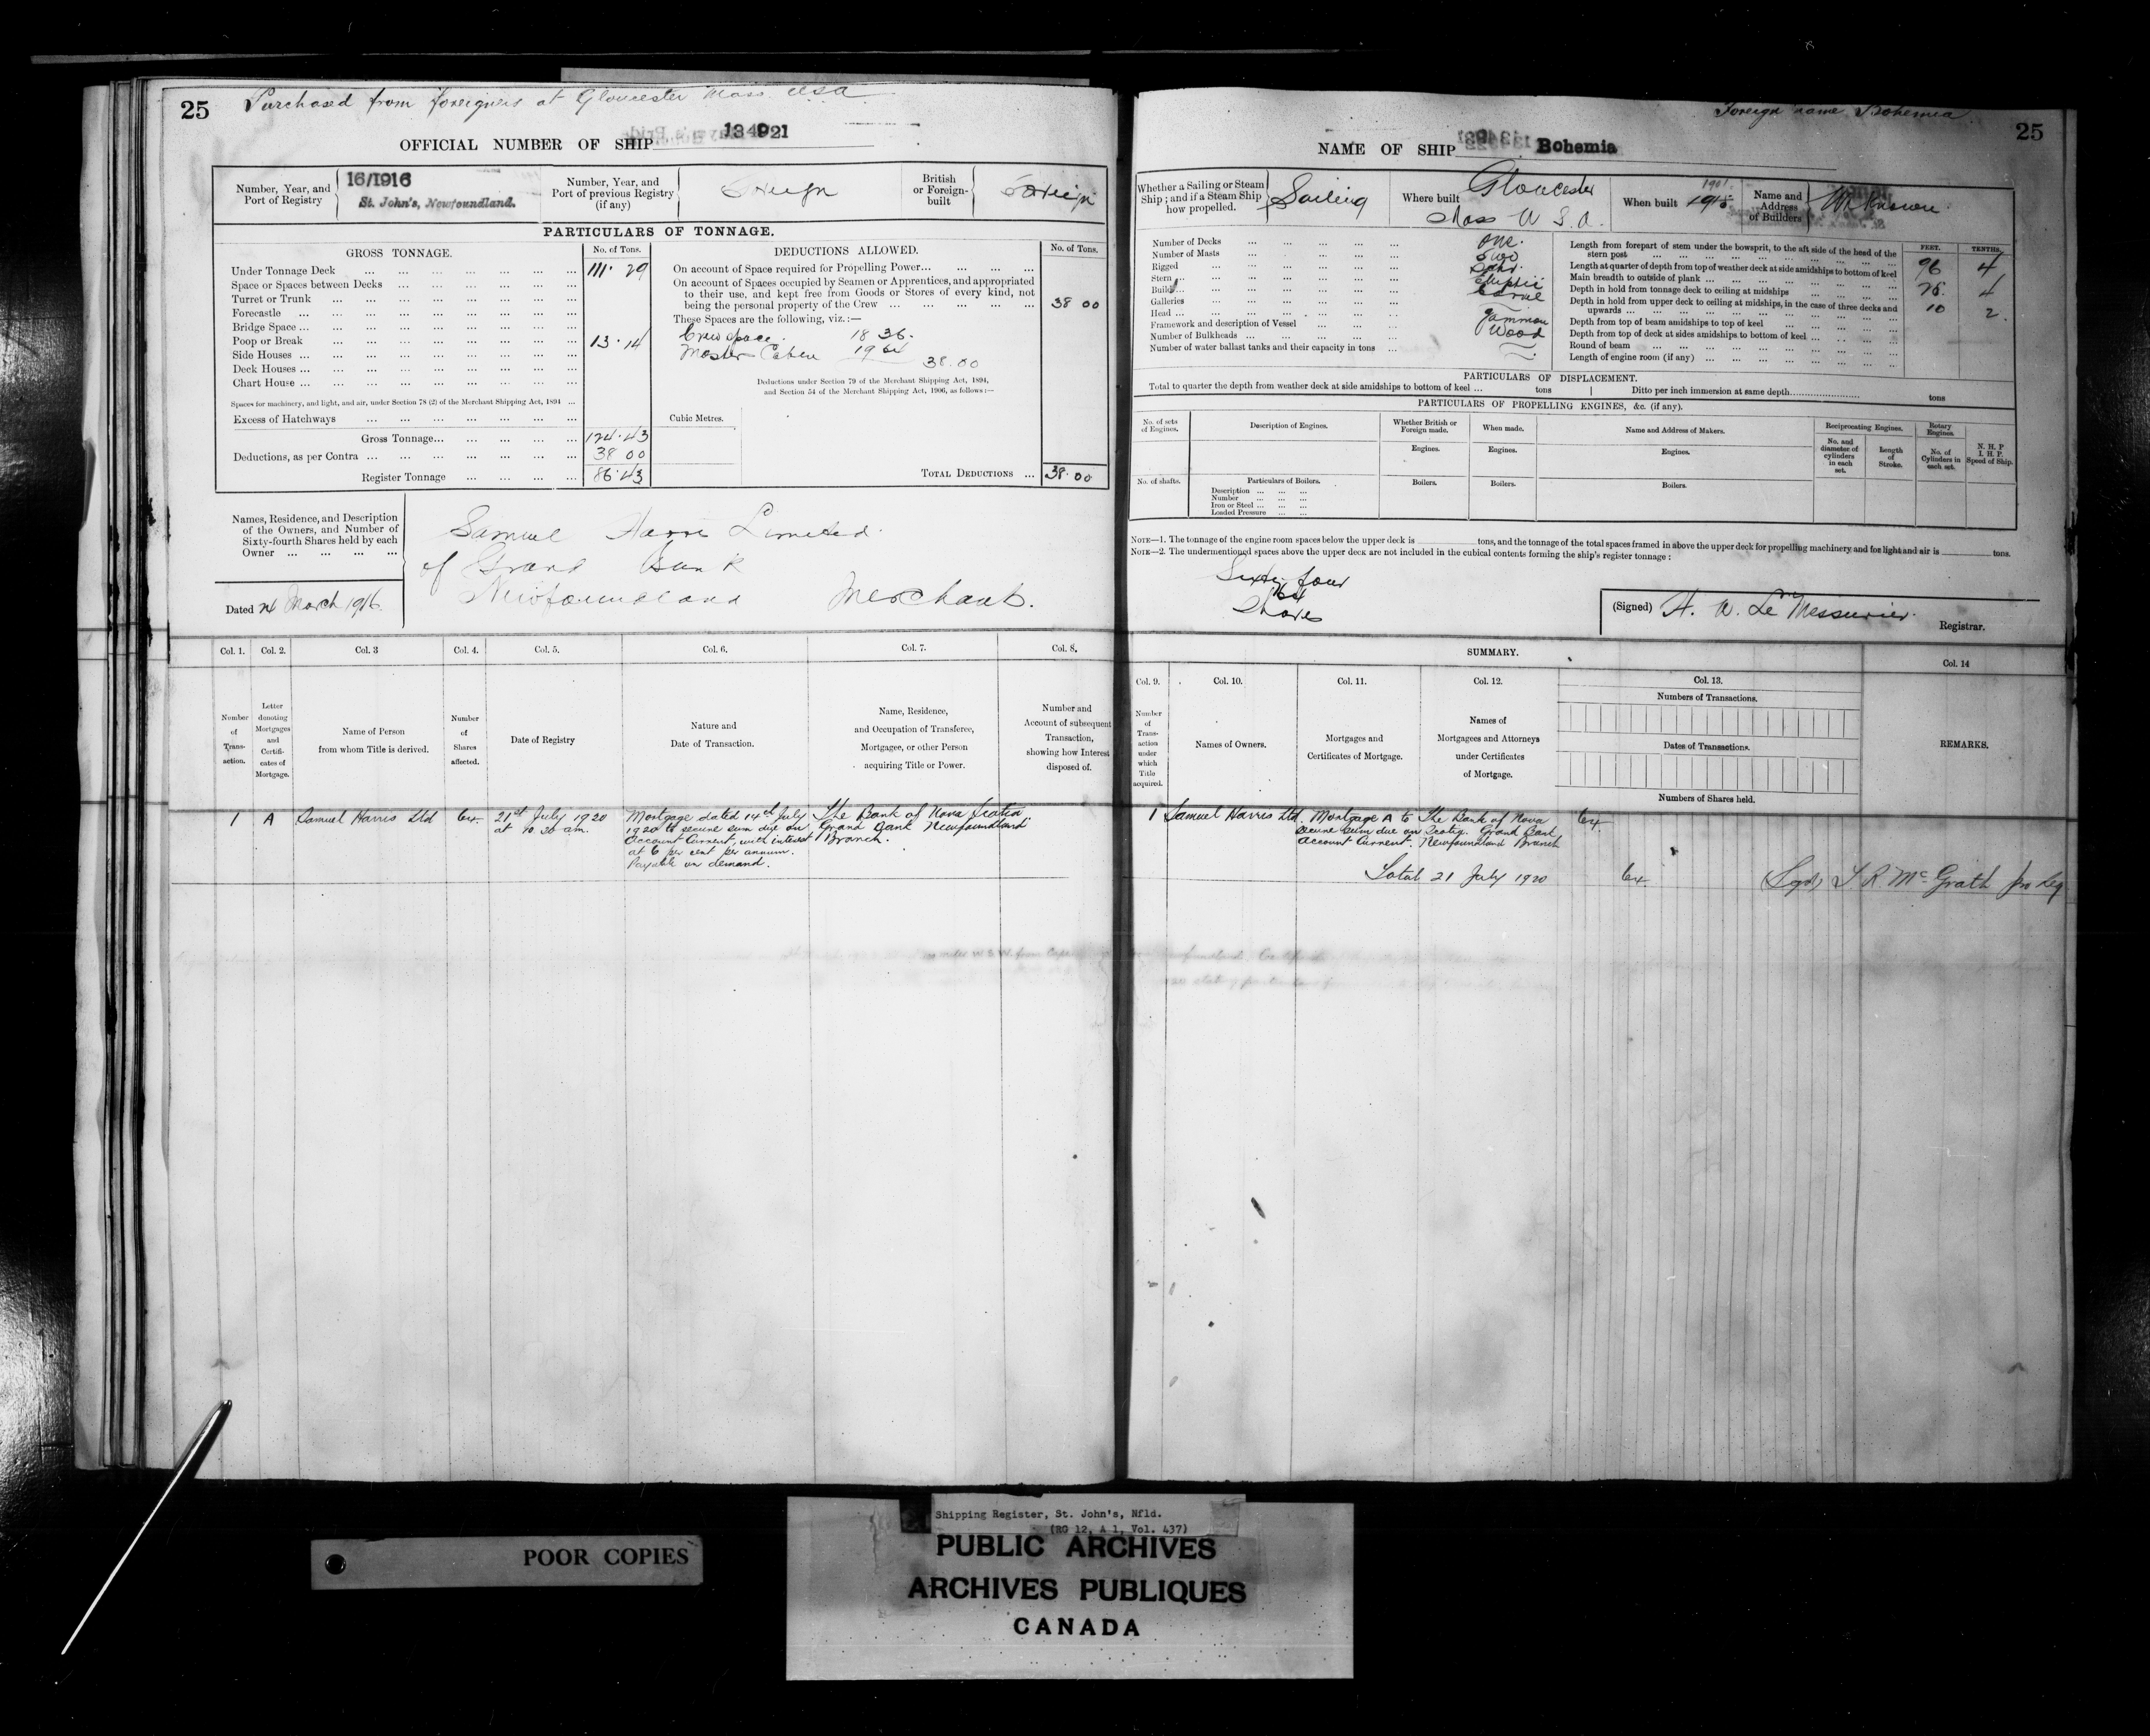 25
Purchased from foreigners at Gloucester Mass USA
OFFICIAL NUMBER OF SHIP
Number, Year, and Port of Registry
16/1916
St. John's, Newfoundland.
Number, Year, and Port of previous Registry (if any)
Foreign
British or Foreign-built
Foreign
PARTICULARS OF TONNAGE.
GROSS TONNAGE. No. of Tons.
Under Tonnage Deck ... 111.29
Space or Spaces between Decks ...
Turret or Trunk ...
Forecastle ...
Bridge Space ...
Poop or Break ... 13.14
Side Houses ...
Deck Houses ...
Chart House ...
Spaces for machinery, and light, and air, under Section 78 (2) of the Merchant Shipping Act, 1894 ...
Excess of Hatchways ...
Gross Tonnage... 124.43
Deductions, as per Contra ... 38 00
Register Tonnage ... 86.43
DEDUCTIONS ALLOWED. No. of Tons.
On account of Space required for Propelling Power...
On account of Spaces occupied by Seamen or Apprentices, and appropriated
to their use, and kept free from Goods or Stores of every kind, not
being the personal property of the Crew ... 38 00
These Spaces are the following, viz.:—
Crew space 18 36.
Master Cabin 19 64
38.00
Deductions under Section 79 of the Merchant Shipping Act, 1894,
and Section 54 of the Merchant Shipping Act, 1906, as follows:—
Cubic Metres.
TOTAL DEDUCTIONS ... 38.00
Names, Residence, and Description
of the Owners, and Number of
Sixty-fourth Shares held by each
Owner ...
Samuel Harris Limited
of Grand Bank
Newfoundland Merchants.
Dated 24 March 1916
Col. 1. Col. 2. Col. 3 Col. 4. Col. 5. Col. 6. Col. 7. Col. 8.
Number of Trans-action.
Letter denoting Mortgages and Certifi-cates of Mortgage.
Name of Person from whom Title is derived.
Number of Shares affected.
Date of Registry
Nature and Date of Transaction.
Name, Residence, and Occupation of Transferee, Mortgagee, or other Person acquiring Title or Power.
Number and Account of subsequent Transaction, showing how Interest disposed of.
1 A Samuel Harris Ltd 64.
21st July 1920
at 10 30 am.
Mortgage dated 14th July
1920 to secure sum due on
Account Current, with interest
at 6 per cent per annum.
Payable on demand.
The Bank of Nova Scotia,
Grand Bank Newfoundland
Branch.
Foreign name Bohemia
25
NAME OF SHIP Bohemia
Whether a Sailing or Steam Ship; and if a Steam Ship how propelled.
Sailing
Where built
Gloucester
Mass U S A.
When built
1901
Name and Address of Builders
Unknown
Number of Decks ... One.
Number of Masts ... Two
Rigged ... Schr.
Stern ... Elliptic
Build ... Carvel
Galleries ...
Head ... Gammon
Framework and description of Vessel ... Wood
Number of Bulkheads ...
Number of water ballast tanks and their capacity in tons ...
FEET. TENTHS.
Length from forepart of stem under the bowsprit, to the aft side of the head of the
stern post ... 96 4
Length at quarter of depth from top of weather deck at side amidships to bottom of keel
Main breadth to outside of plank ... 4
Depth in hold from tonnage deck to ceiling at midships ... 10 2
Depth in hold from upper deck to ceiling at midships, in the case of three decks and
upwards ...
Depth from top of beam amidships to top of keel ...
Depth from top of deck at side amidships to bottom of keel ...
Round of beam ...
Length of engine room (if any) ...
PARTICULARS OF DISPLACEMENT.
Total to quarter the depth from weather deck at side amidships to bottom of keel ... tons Ditto per inch immersion at same depth... tons
PARTICULARS OF PROPELLING ENGINES, &c. (if any).
No. of sets of Engines.
Description of Engines.
Whether British or Foreign made.
When made.
Name and Address of Makers.
Reciprocating Engines.
Rotary Engines.
N. H. P. I. H. P. Speed of Ship.
Engines. Engines. Engines.
No. and diameter of cylinders in each set.
Length of Stroke.
No. of Cylinders in each set.
No. of shafts.
Particulars of Boilers.
Boilers. Boilers. Boilers.
Description ...
Number ...
Iron or Steel ...
Loaded Pressure ...
NOTE—1. The tonnage of the engine room spaces below the upper deck is tons, and the tonnage of the total spaces framed in above the upper deck for propelling machinery and for light and air is tons.
NOTE—2. The undermentioned spaces above the upper deck are not included in the cubical contents forming the ship's register tonnage:
Sixty four
64
Shares
(Signed) H. W. Le Messurier.
Registrar.
SUMMARY.
Col. 9. Col. 10. Col. 11. Col. 12. Col. 13. Col. 14
Number of Trans-action under which Title acquired.
Names of Owners.
Mortgages and Certificates of Mortgage.
Names of Mortgagees and Attorneys under Certificates of Mortgage.
Numbers of Transactions.
Dates of Transactions.
Numbers of Shares held.
REMARKS.
1 Samuel Harris Ltd.
Mortgage A to
secure sum due on
Account Current.
The Bank of Nova
Scotia. Grand Bank,
Newfoundland Branch
64.
Total 21 July 1920 64. (Sgd) T R. McGrath pro Reg
Shipping Register, St. John's, Nfld.
(RG 12, A 1, Vol. 437)
POOR COPIES
PUBLIC ARCHIVES
ARCHIVES PUBLIQUES
CANADA